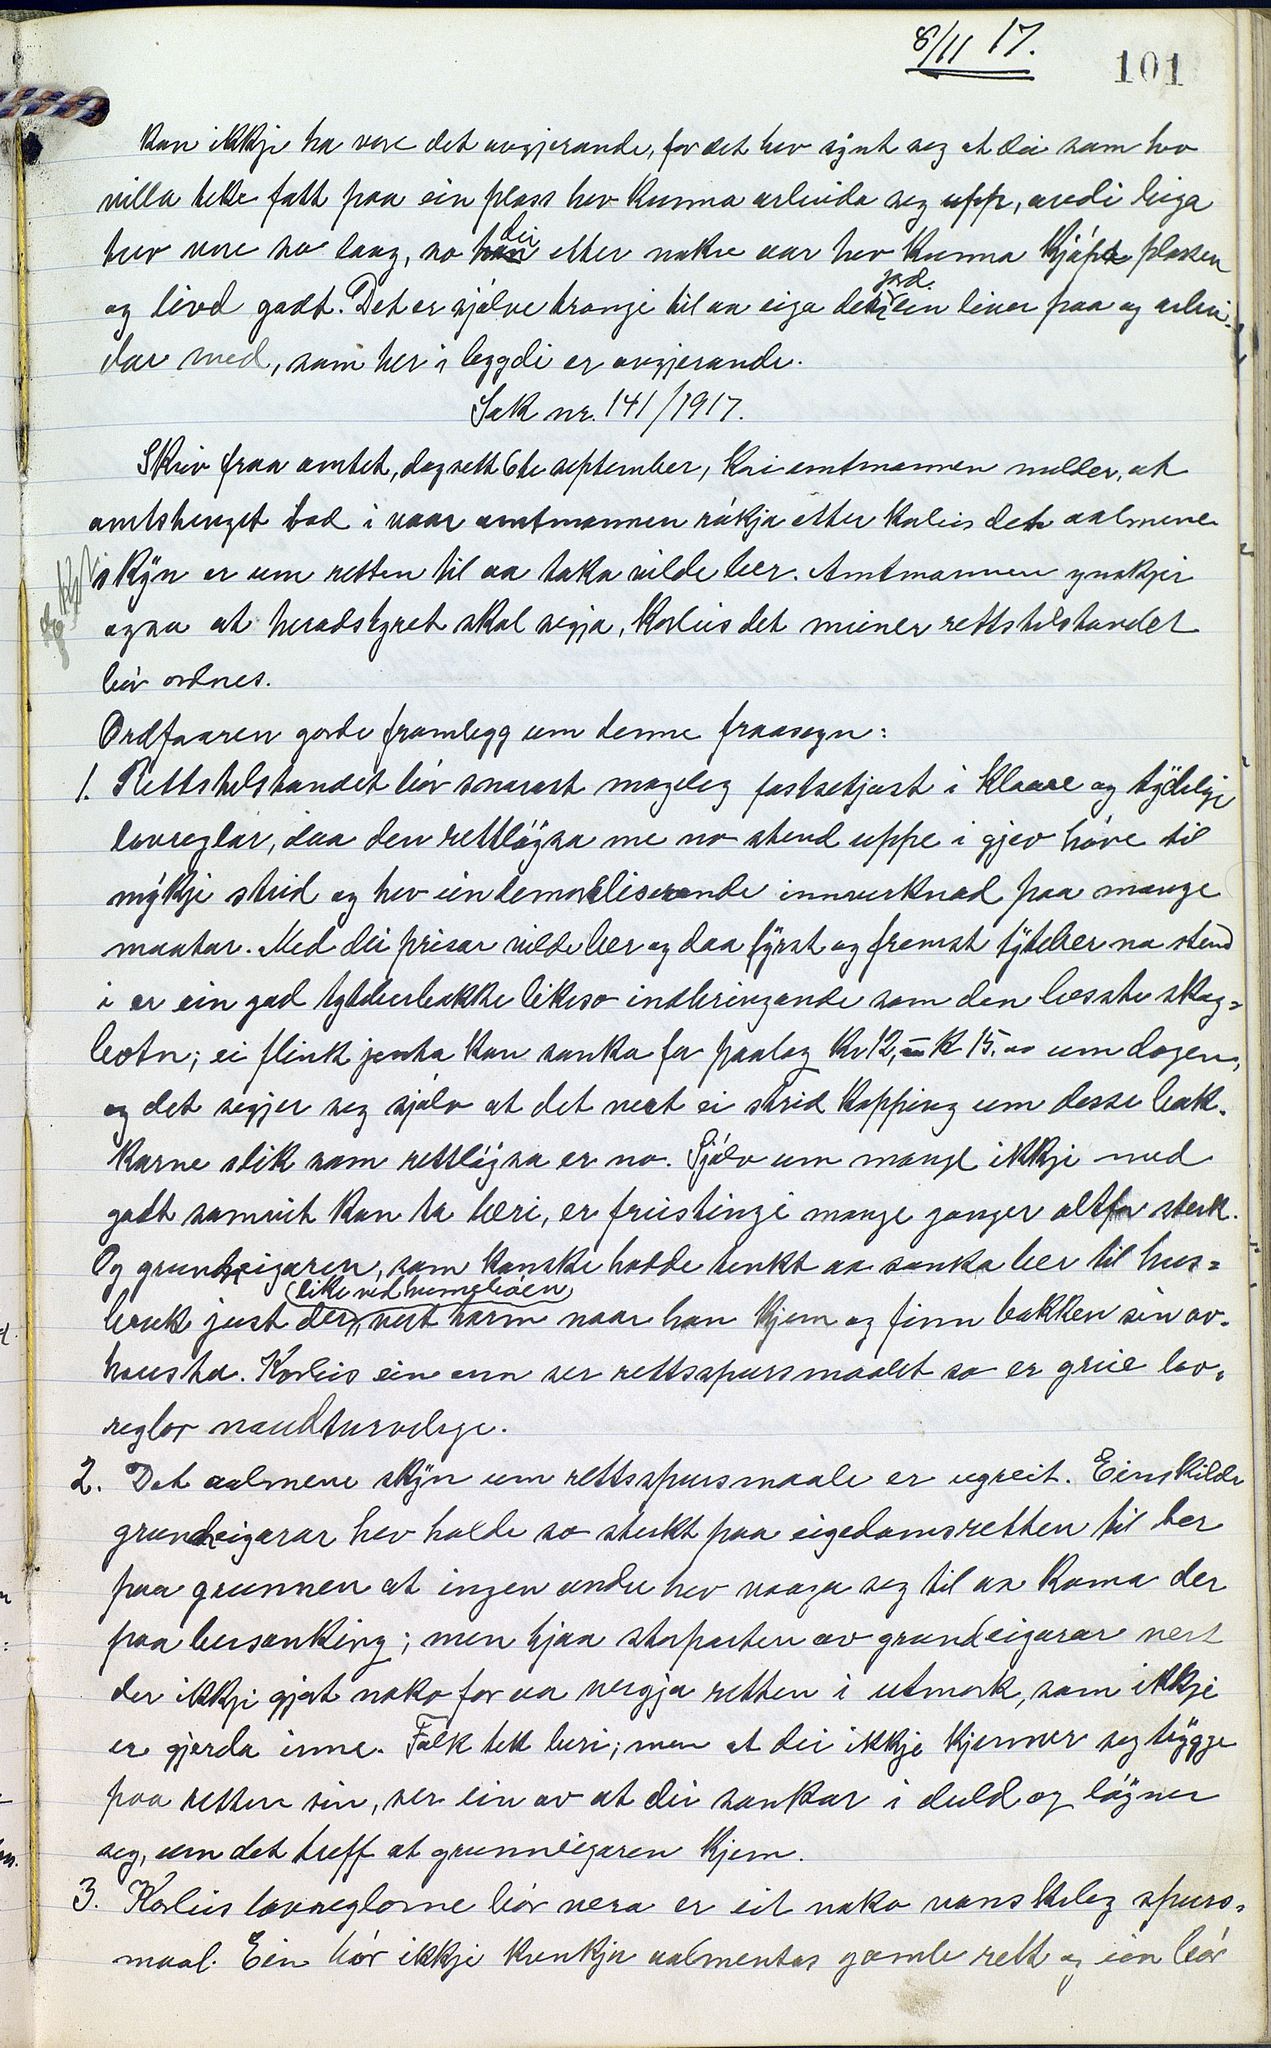 8/11 17.
101
kan ikkje ha vore det avgjerande, for det hev synt seg at dei som hev
villa teke fatt paa ein plass hev kunna arbeida seg upp, avdi leiga
hev vore so laag, so dei etter nokre aar hev kunna kjøpt plassen
og livd godt. Det er sjølve trongi til aa eiga den jord. ein liver paa og arbei-
dar med, som her i bygdi er avgjerande.
Sak nr. 141/1917.
Skriv fraa amtet, dagsett 6te september, kori amtmannen melder, at
amtstinget bad i vaar amtmannen røkja etter korleis det aalmene
skyn er um retten til aa taka vilde ber. Amtmannen ynskjer
ogso at heradstyret skal segja, korleis det meiner rettstilstandet
bør ordnes.
Ordføraren gorde framlegg um denne fraasegn:
1. Rettstilstandet bør snarast mogeleg fastsetjast i klaare og tydelige
lovreglar, daa den rettløysa me no stend uppe i gjev høve til
mykje strid og hev ein demoraliserande innverknad paa mange
maatar. Med dei prisar vilde ber og daa fyrst og fremst tyteber no stend
i er ein god tyteberbakke likeso indbringande som den beste skog-
botn; ei flink jenta kan sanka for paalag kr 12, – kr 15. oo um dagen,
og det segjer seg sjølv at det vert ei strid kapping um desse bak-
karne slik som rettløysa er no. Sjølv um mange ikkje med
godt samvit kan ta beri, er freistingi mange gonger altfor sterk.
Og grundeigaren, som kanske hadde tenkt aa sanka ber til hus-
bruk just der, like ved heimebøen vert harm naar han kjem og finn bakken sin av-
hausta. Korleis ein enn ser rettsspursmaalet so er greie lov-
reglar naudturvelege.
2. Det aalmene skyn um rettsspursmaale er ugreit. Einskilde
grundeigarar hev halde so sterkt paa eigedomsretten til ber
paa grunnen at ingen andre hev vaaga seg til aa koma der
paa bersanking; men hjaa storparten av grundeigarar vert
der ikkje gjort noko for aa vergja retten i utmark, som ikkje
er gjerda inne. Folk tek beri; men at dei ikkje kjenner seg trygge
paa retten sin, ser ein av at dei sankar i duld og løyner
seg, um det treff at grunneigaren kjem.
3. Korleis lovreglarne bør vera er eit noko vanskeleg spurs-
maal. Ein bør ikkje krenkja aalmentas gamle rett og ein bør